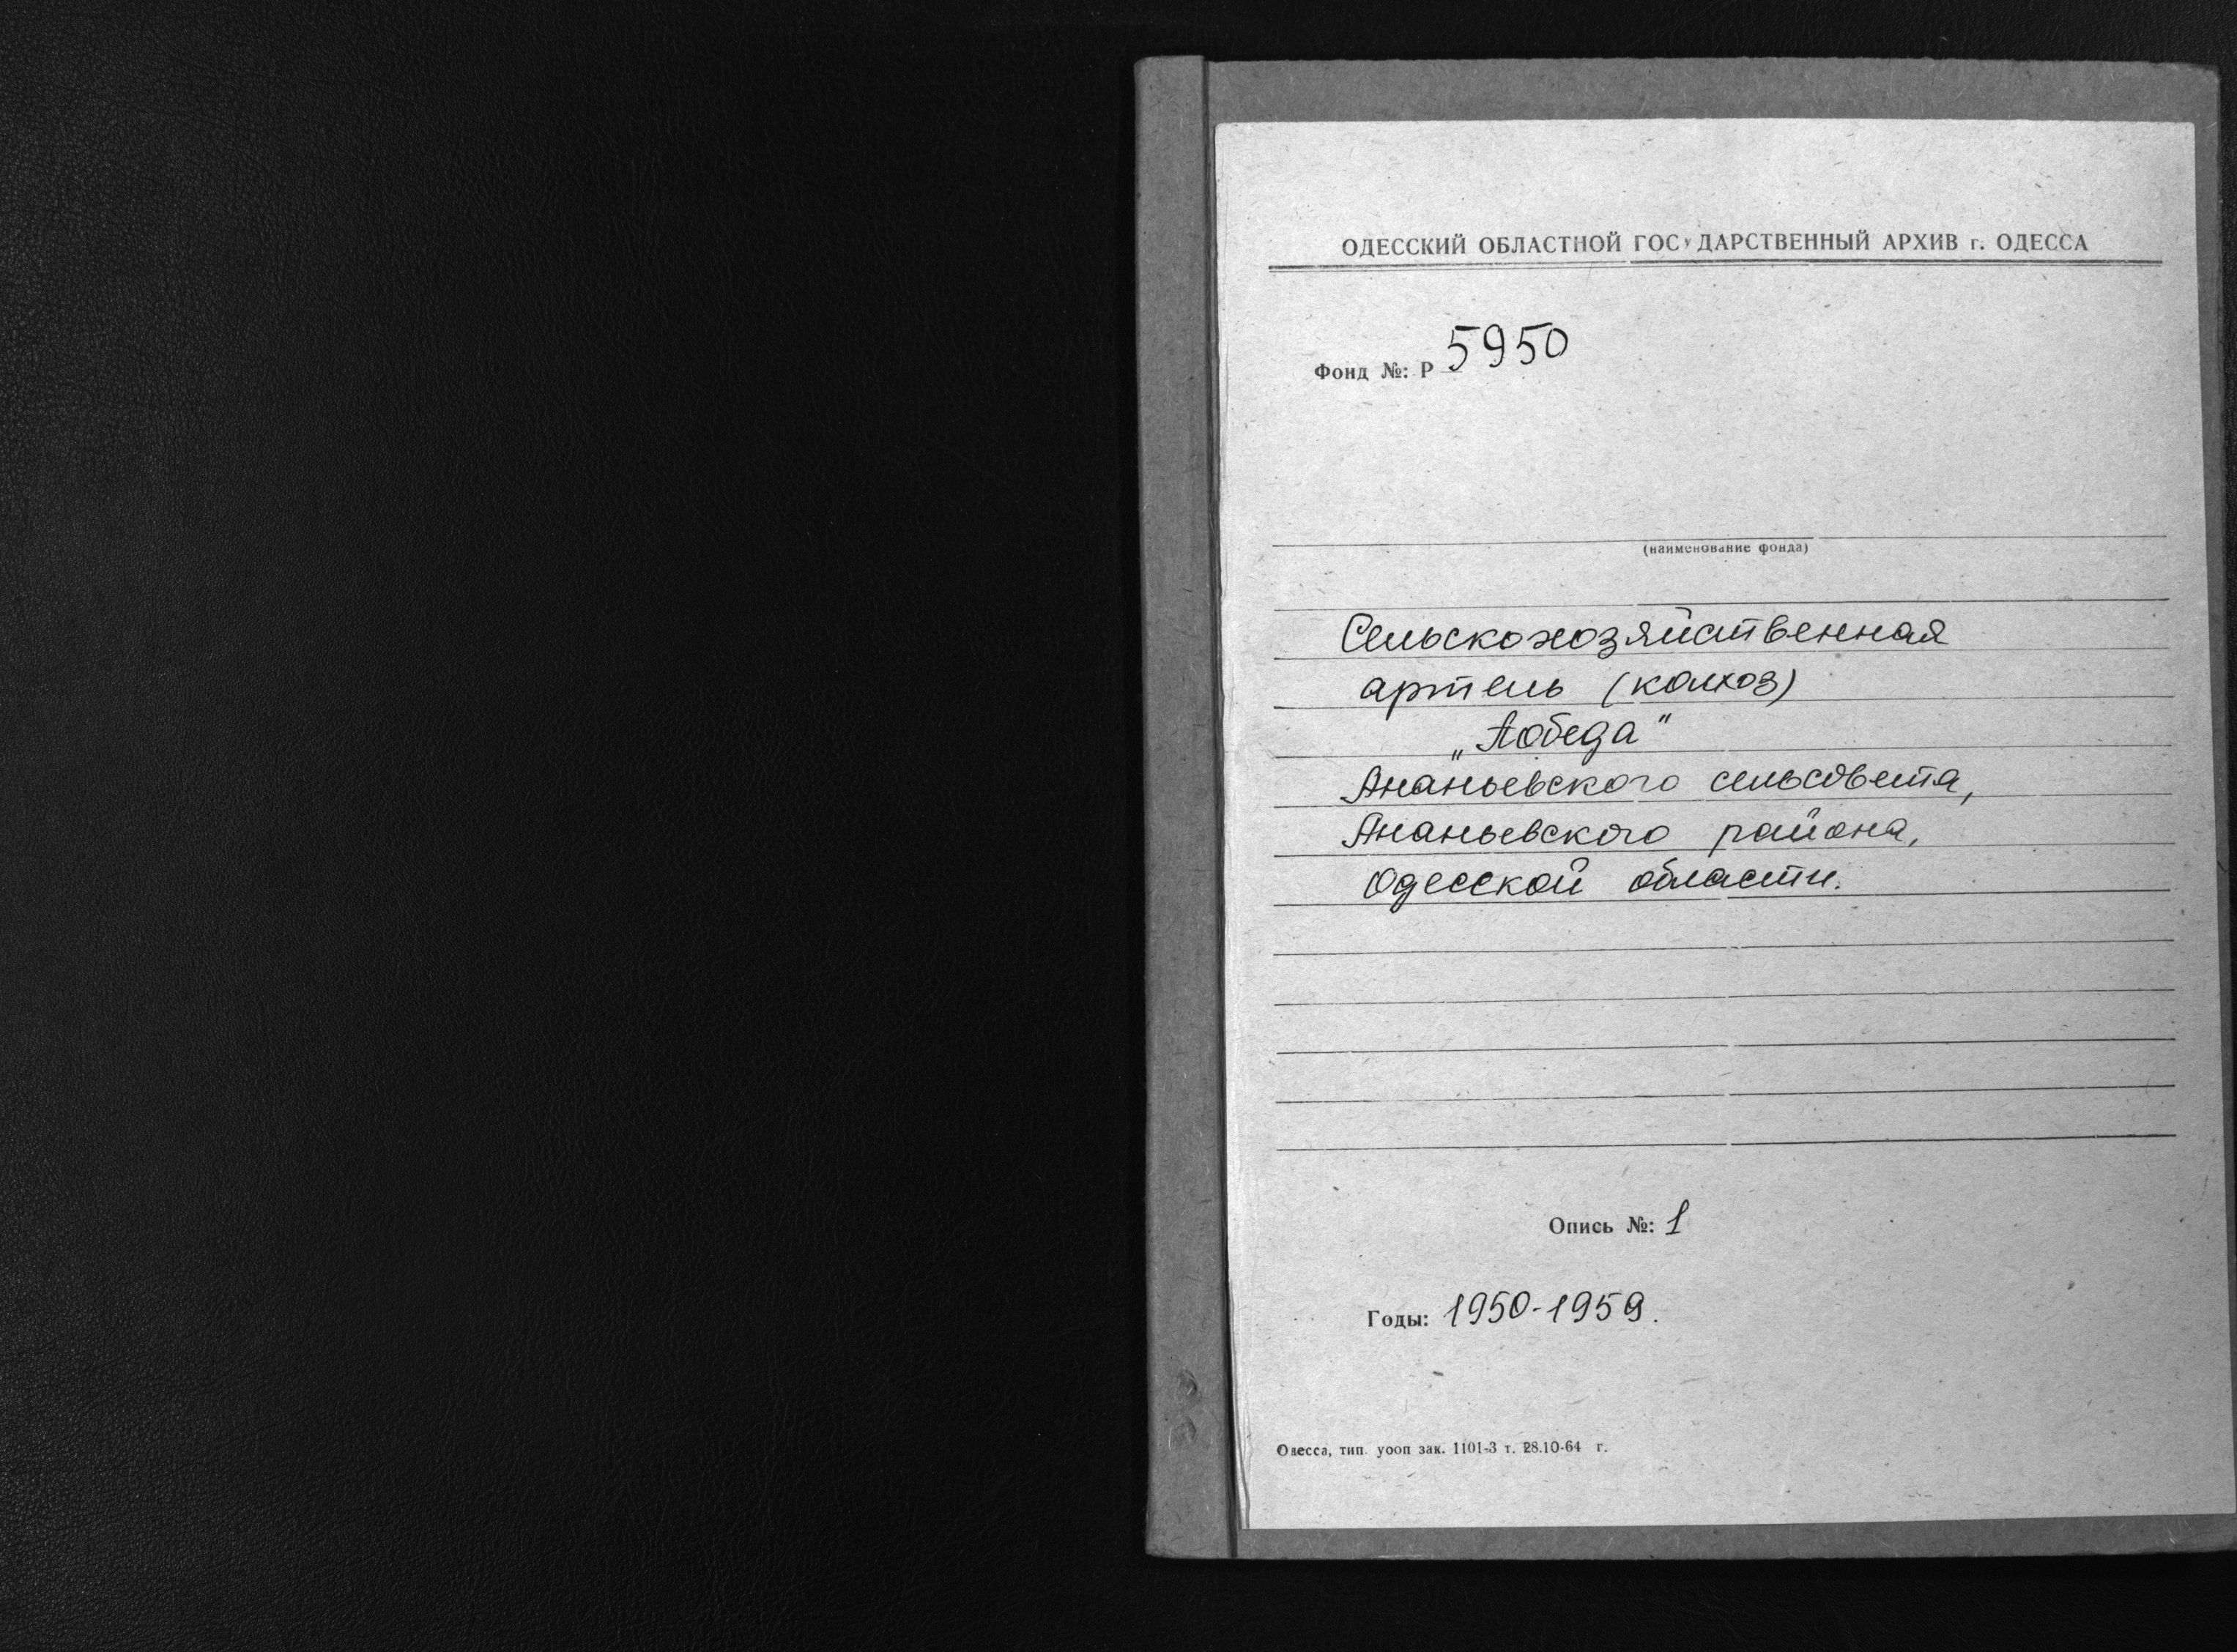 ОДЕССКИЙ ОБЛАСТНОЙ ГОСУДАРСТВЕННЫЙ АРХИВ г. ОДЕССА
Фонд №: Р 5950
(наименование фонда)
Сельскохозяйственная
артель (колхоз)
„Победа"
Ананьевского сельсовета,
Ананьевского района,
Одесской области.
Опись №: 1
Годы: 1950-1959.
Одесса, тип. уооп зак. 1101-3 т. 28.10-64 г.